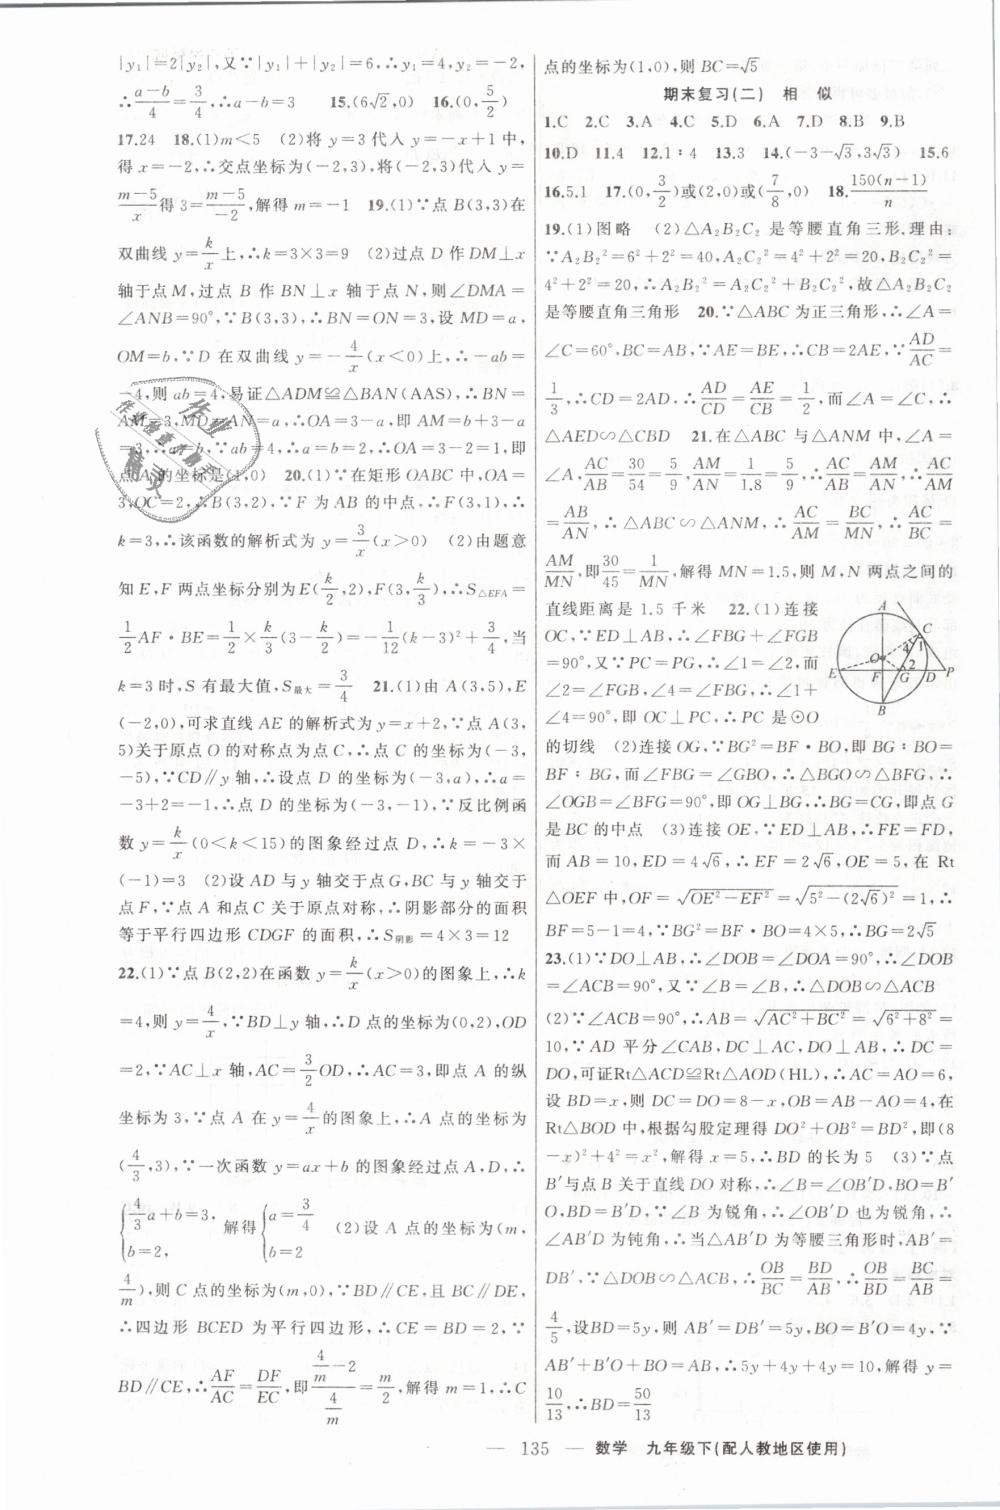 |y₁|=2|y₂|,又∵|y₁|+|y₂|=6,∴y₁=4,y₂=-2,
∴(a-b)/4=3/4,∴a-b=3 15.(6√2,0) 16.(0,5/2)
17.24 18.(1)m<5 (2)将 y=3代入 y=-x+1中,
得 x=-2,∴交点坐标为(-2,3),将(-2,3)代入 y=
(m-5)/x得3=(m-5)/-2,解得 m=-1 19.(1)∵点 B(3,3)在
双曲线 y=k/x上,∴k=3×3=9 (2)过点 D 作 DM⊥x
轴于点 M,过点 B 作 BN⊥x 轴于点 N,则∠DMA=
∠ANB=90°,∵B(3,3),∴BN=ON=3,设 MD=a,
OM=b,∵D 在双曲线 y=-4/x(x<0)上,∴-ab=
-4,则 ab=4,易证△ADM≌△BAN(AAS),∴BN=
AM=3,MD=AN=a,∴OA=3-a,即 AM=b+3-a
=3,∴a=b,∵ab=4,∴a=b=2,∴OA=3-2=1,即
点 A 的坐标是(1,0) 20.(1)∵在矩形 OABC 中,OA=
3,OC=2,∴B(3,2),∵F 为 AB 的中点,∴F(3,1),∴
k=3,∴该函数的解析式为 y=3/x(x>0) (2)由题意
知 E,F 两点坐标分别为E(k/2,2),F(3,k/3),∴S△EFA=
1/2AF·BE=1/2×k/3(3-k/2)=-1/12(k-3)²+3/4,当
k=3时,S 有最大值,S最大=3/4 21.(1)由 A(3,5),E
(-2,0),可求直线 AE 的解析式为 y=x+2,∵点 A(3,
5)关于原点 O 的对称点为点 C,∴点 C 的坐标为(-3,
-5),∵CD∥y 轴,∴设点 D 的坐标为(-3,a),∴a=
-3+2=-1,∴点 D 的坐标为(-3,-1),∵反比例函
数 y=k/x(0<k<15)的图象经过点 D,∴k=-3×
(-1)=3 (2)设 AD 与 y 轴交于点G,BC 与 y轴交于
点 F,∵点 A 和点 C 关于原点对称,∴阴影部分的面积
等于平行四边形 CDGF 的面积,∴S阴影=4×3=12
22.(1)∵点 B(2,2)在函数 y=k/x(x>0)的图象上,∴k
=4,则 y=4/x,∵BD⊥y 轴,∴D 点的坐标为(0,2),OD
=2,∵AC⊥x 轴,AC=3/2OD,∴AC=3,即点 A 的纵
坐标为 3,∵点 A 在 y=4/x的图象上,∴A 点的坐标为
(4/3,3),∵一次函数 y=ax+b 的图象经过点 A,D,∴
{4/3a+b=3, b=2, 解得{a=3/4 b=2 (2)设 A 点的坐标为(m,
4/m),则 C 点的坐标为(m,0),∵BD∥CE,且 BC∥DE,
∴四边形 BCED 为平行四边形,∴CE=BD=2,∵
BD∥CE,∴AF/AC=DF/EC,即(4/m-2)/(4/m)=m/2,解得 m=1,∴C
点的坐标为(1,0),则 BC=√5
期末复习(二) 相 似
1.C 2.C 3.A 4.C 5.D 6.A 7.D 8.B 9.B
10.D 11.4 12.1∶4 13.3 14.(-3-√3,3√3) 15.6
16.5.1 17.(0,3/2)或(2,0)或(7/8,0) 18.150(n-1)/n
19.(1)图略 (2)△A₂B₂C₂ 是等腰直角三角形.理由:
∵A₂B₂²=6²+2²=40,A₂C₂²=4²+2²=20,B₂C₂²=
4²+2²=20,∴A₂B₂²=A₂C₂²+B₂C₂²,故△A₂B₂C₂
是等腰直角三角形 20.∵△ABC 为正三角形,∴∠A=
∠C=60°,BC=AB,∵AE=BE,∴CB=2AE,∵AD/AC=
1/3,∴CD=2AD,∴AD/CD=AE/CB=1/2,而∠A=∠C,∴
△AED∽△CBD 21.在△ABC 与△ANM 中,∠A=
∠A,AC/AB=30/54=5/9,AM/AN=1/1.8=5/9,∴AC/AB=AM/AN,∴AM/AC
=AB/AN,∴△ABC∽△ANM,∴AC/AM=BC/MN,∴AC/BC=
AM/MN,即30/45=1/MN,解得 MN=1.5,则 M,N 两点之间的
直线距离是 1.5 千米 22.(1)连接
OC,∵ED⊥AB,∴∠FBG+∠FGB
=90°,又∵PC=PG,∴∠1=∠2,而
∠2=∠FGB,∠4=∠FBG,∴∠1+
∠4=90°,即 OC⊥PC,∴PC 是⊙O
的切线 (2)连接 OG,∵BG²=BF·BO,即 BG∶BO=
BF∶BG,而∠FBG=∠GBO,∴△BGO∽△BFG,∴
∠OGB=∠BFG=90°,即 OG⊥BG,∴BG=CG,即点 G
是 BC 的中点 (3)连接 OE,∵ED⊥AB,∴FE=FD,
而 AB=10,ED=4√6,∴EF=2√6,OE=5,在 Rt
△OEF 中,OF=√(OE²-EF²)=√(5²-(2√6)²)=1,∴
BF=5-1=4,∵BG²=BF·BO=4×5,∴BG=2√5
23.(1)∵DO⊥AB,∴∠DOB=∠DOA=90°,∴∠DOB
=∠ACB=90°,又∵∠B=∠B,∴△DOB∽△ACB
(2)∵∠ACB=90°,∴AB=√(AC²+BC²)=√(6²+8²)=
10,∵AD 平分∠CAB,DC⊥AC,DO⊥AB,∴DC=
DO,可证Rt△ACD≌Rt△AOD(HL),∴AC=AO=6,
设 BD=x,则 DC=DO=8-x,OB=AB-AO=4,在
Rt△BOD 中,根据勾股定理得 DO²+OB²=BD²,即(8
-x)²+4²=x²,解得 x=5,∴BD 的长为 5 (3)∵点
B′与点 B 关于直线 DO 对称,∴∠B=∠OB′D,BO=B′
O,BD=B′D,∵∠B 为锐角,∴∠OB′D 也为锐角,∴
∠AB′D 为钝角,∴当△AB′D 为等腰三角形时,AB′=
DB′,∵△DOB∽△ACB,∴OB/BC=BD/AB,∴OB/BD=BC/AB=
4/5,设BD=5y,则 AB′=DB′=5y,BO=B′O=4y,∵
AB′+B′O+BO=AB,∴5y+4y+4y=10,解得 y=
10/13,∴BD=50/13
A
C
4
1
O
2
E
F
G
D
P
B
作业
作业检查有精灵
精灵
— 135 — 数学 九年级下(配人教地区使用)